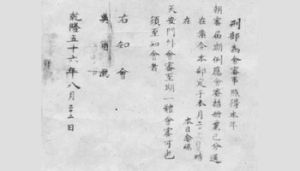 刑部為會審事照得本年
朝審屆期例應會審招冊業已分送
在案今本部定于本月二十
在
天安門外會審至期一體會審可也
須至知會者
右知會
乾隆五十六年八月二十日